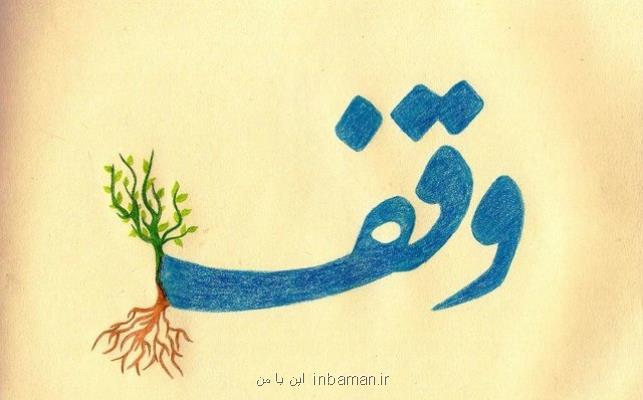 وقف
این با من inbaman.ir